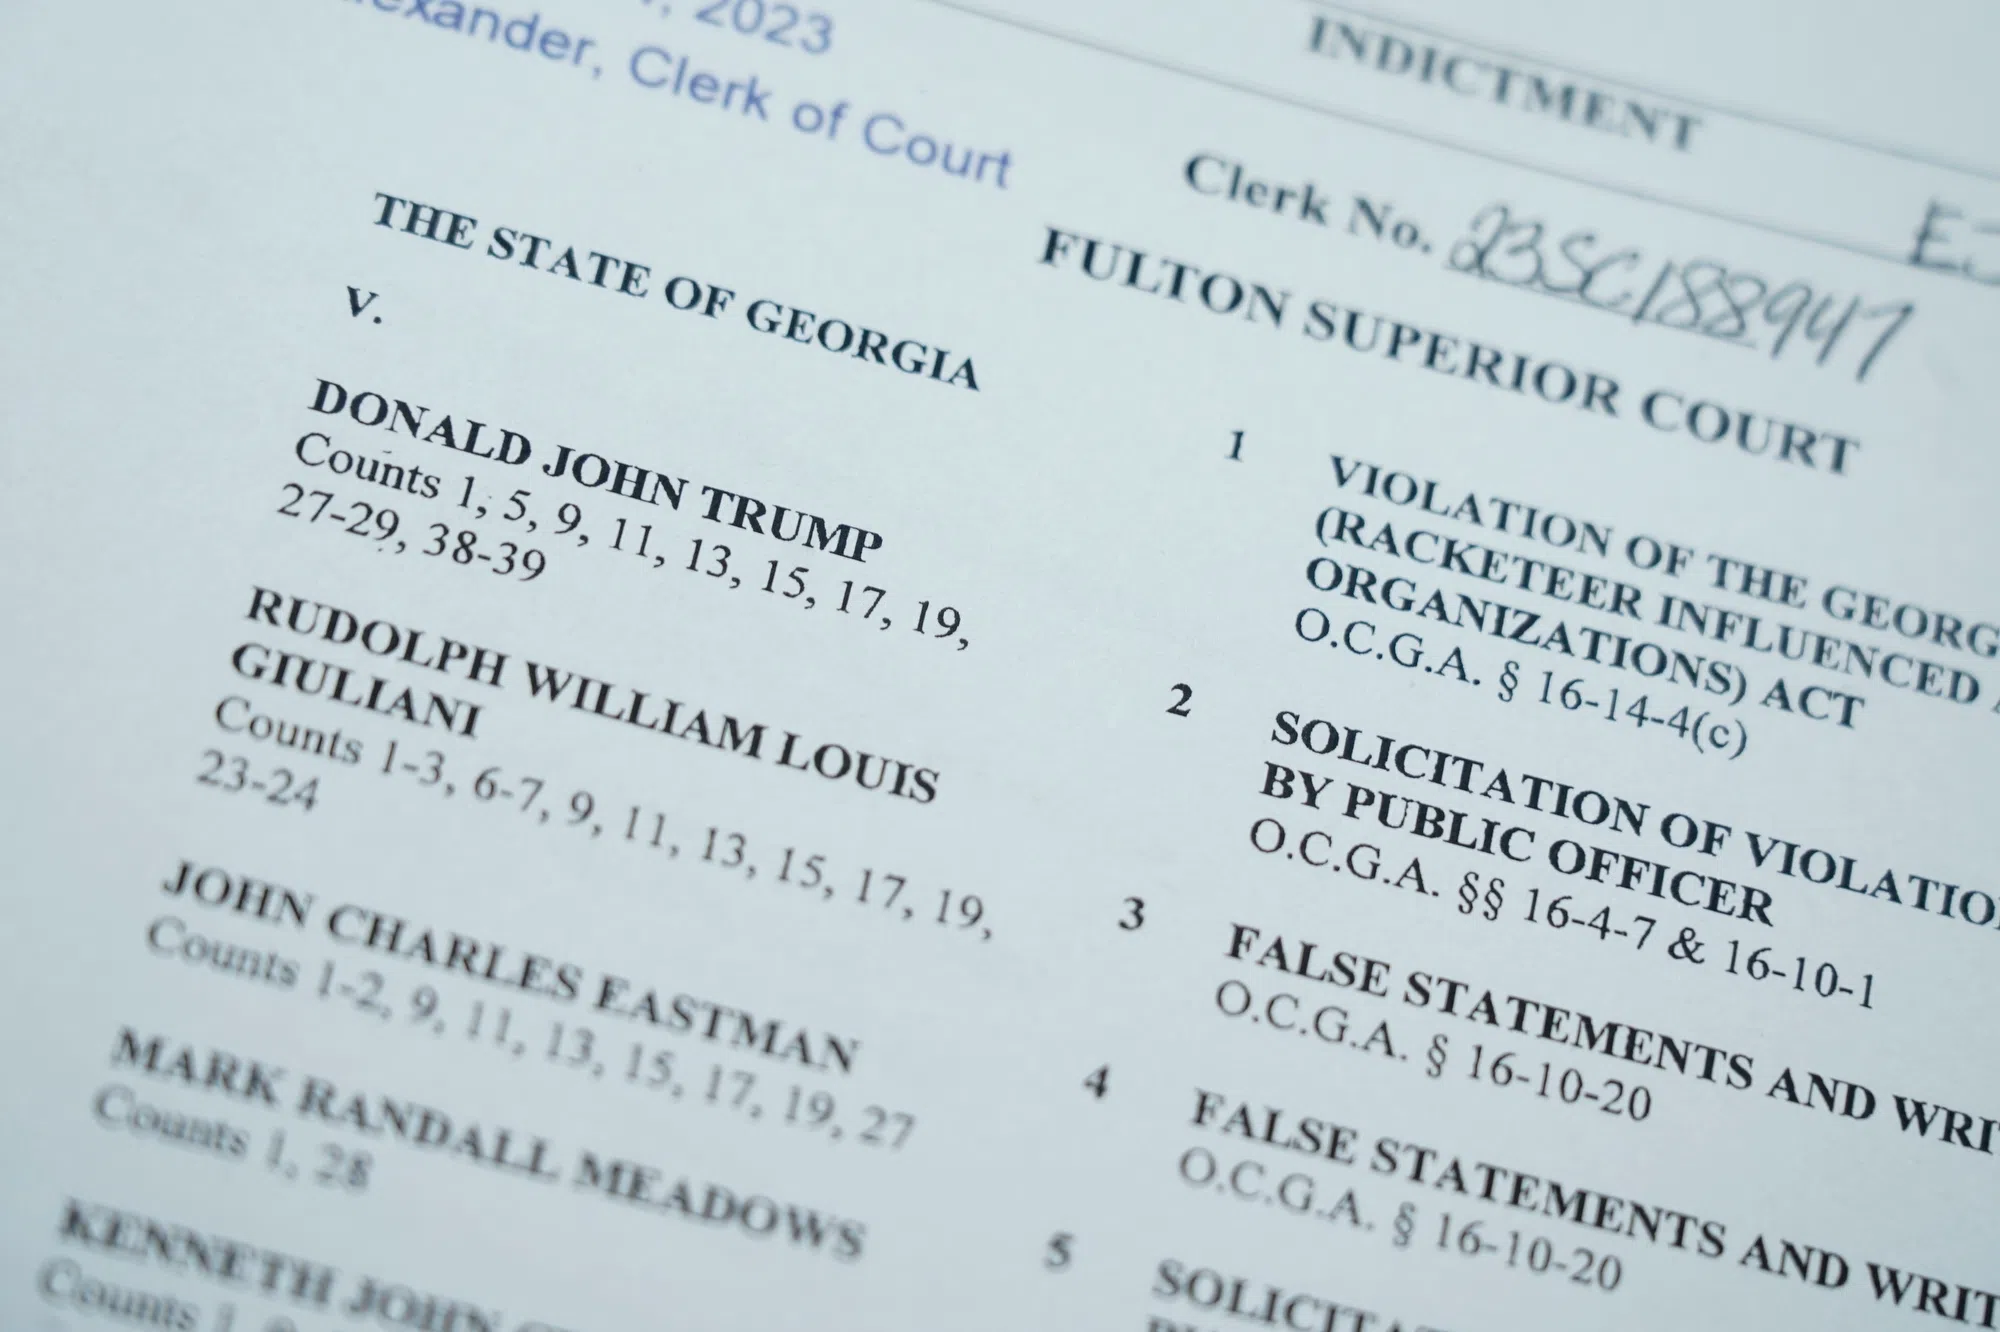 2023
Clerk of Court
INDICTMENT
Clerk No. 23SC188947
THE STATE OF GEORGIA
V.
DONALD JOHN TRUMP
Counts 1, 5, 9, 11, 13, 15, 17, 19,
27-29, 38-39
RUDOLPH WILLIAM LOUIS
GIULIANI
Counts 1-3, 6-7, 9, 11, 13, 15, 17, 19,
23-24
JOHN CHARLES EASTMAN
Counts 1-2, 9, 11, 13, 15, 17, 19, 27
MARK RANDALL MEADOWS
Counts 1, 28
KENNETH JOHN
Counts 1,
FULTON SUPERIOR COURT
1 VIOLATION OF THE GEORG
(RACKETEER INFLUENCED
ORGANIZATIONS) ACT
O.C.G.A. § 16-14-4(c)
2 SOLICITATION OF VIOLATIO
BY PUBLIC OFFICER
O.C.G.A. §§ 16-4-7 & 16-10-1
3 FALSE STATEMENTS AND WRI
O.C.G.A. § 16-10-20
4 FALSE STATEMENTS AND WRIT
O.C.G.A. § 16-10-20
5 SOLICITA